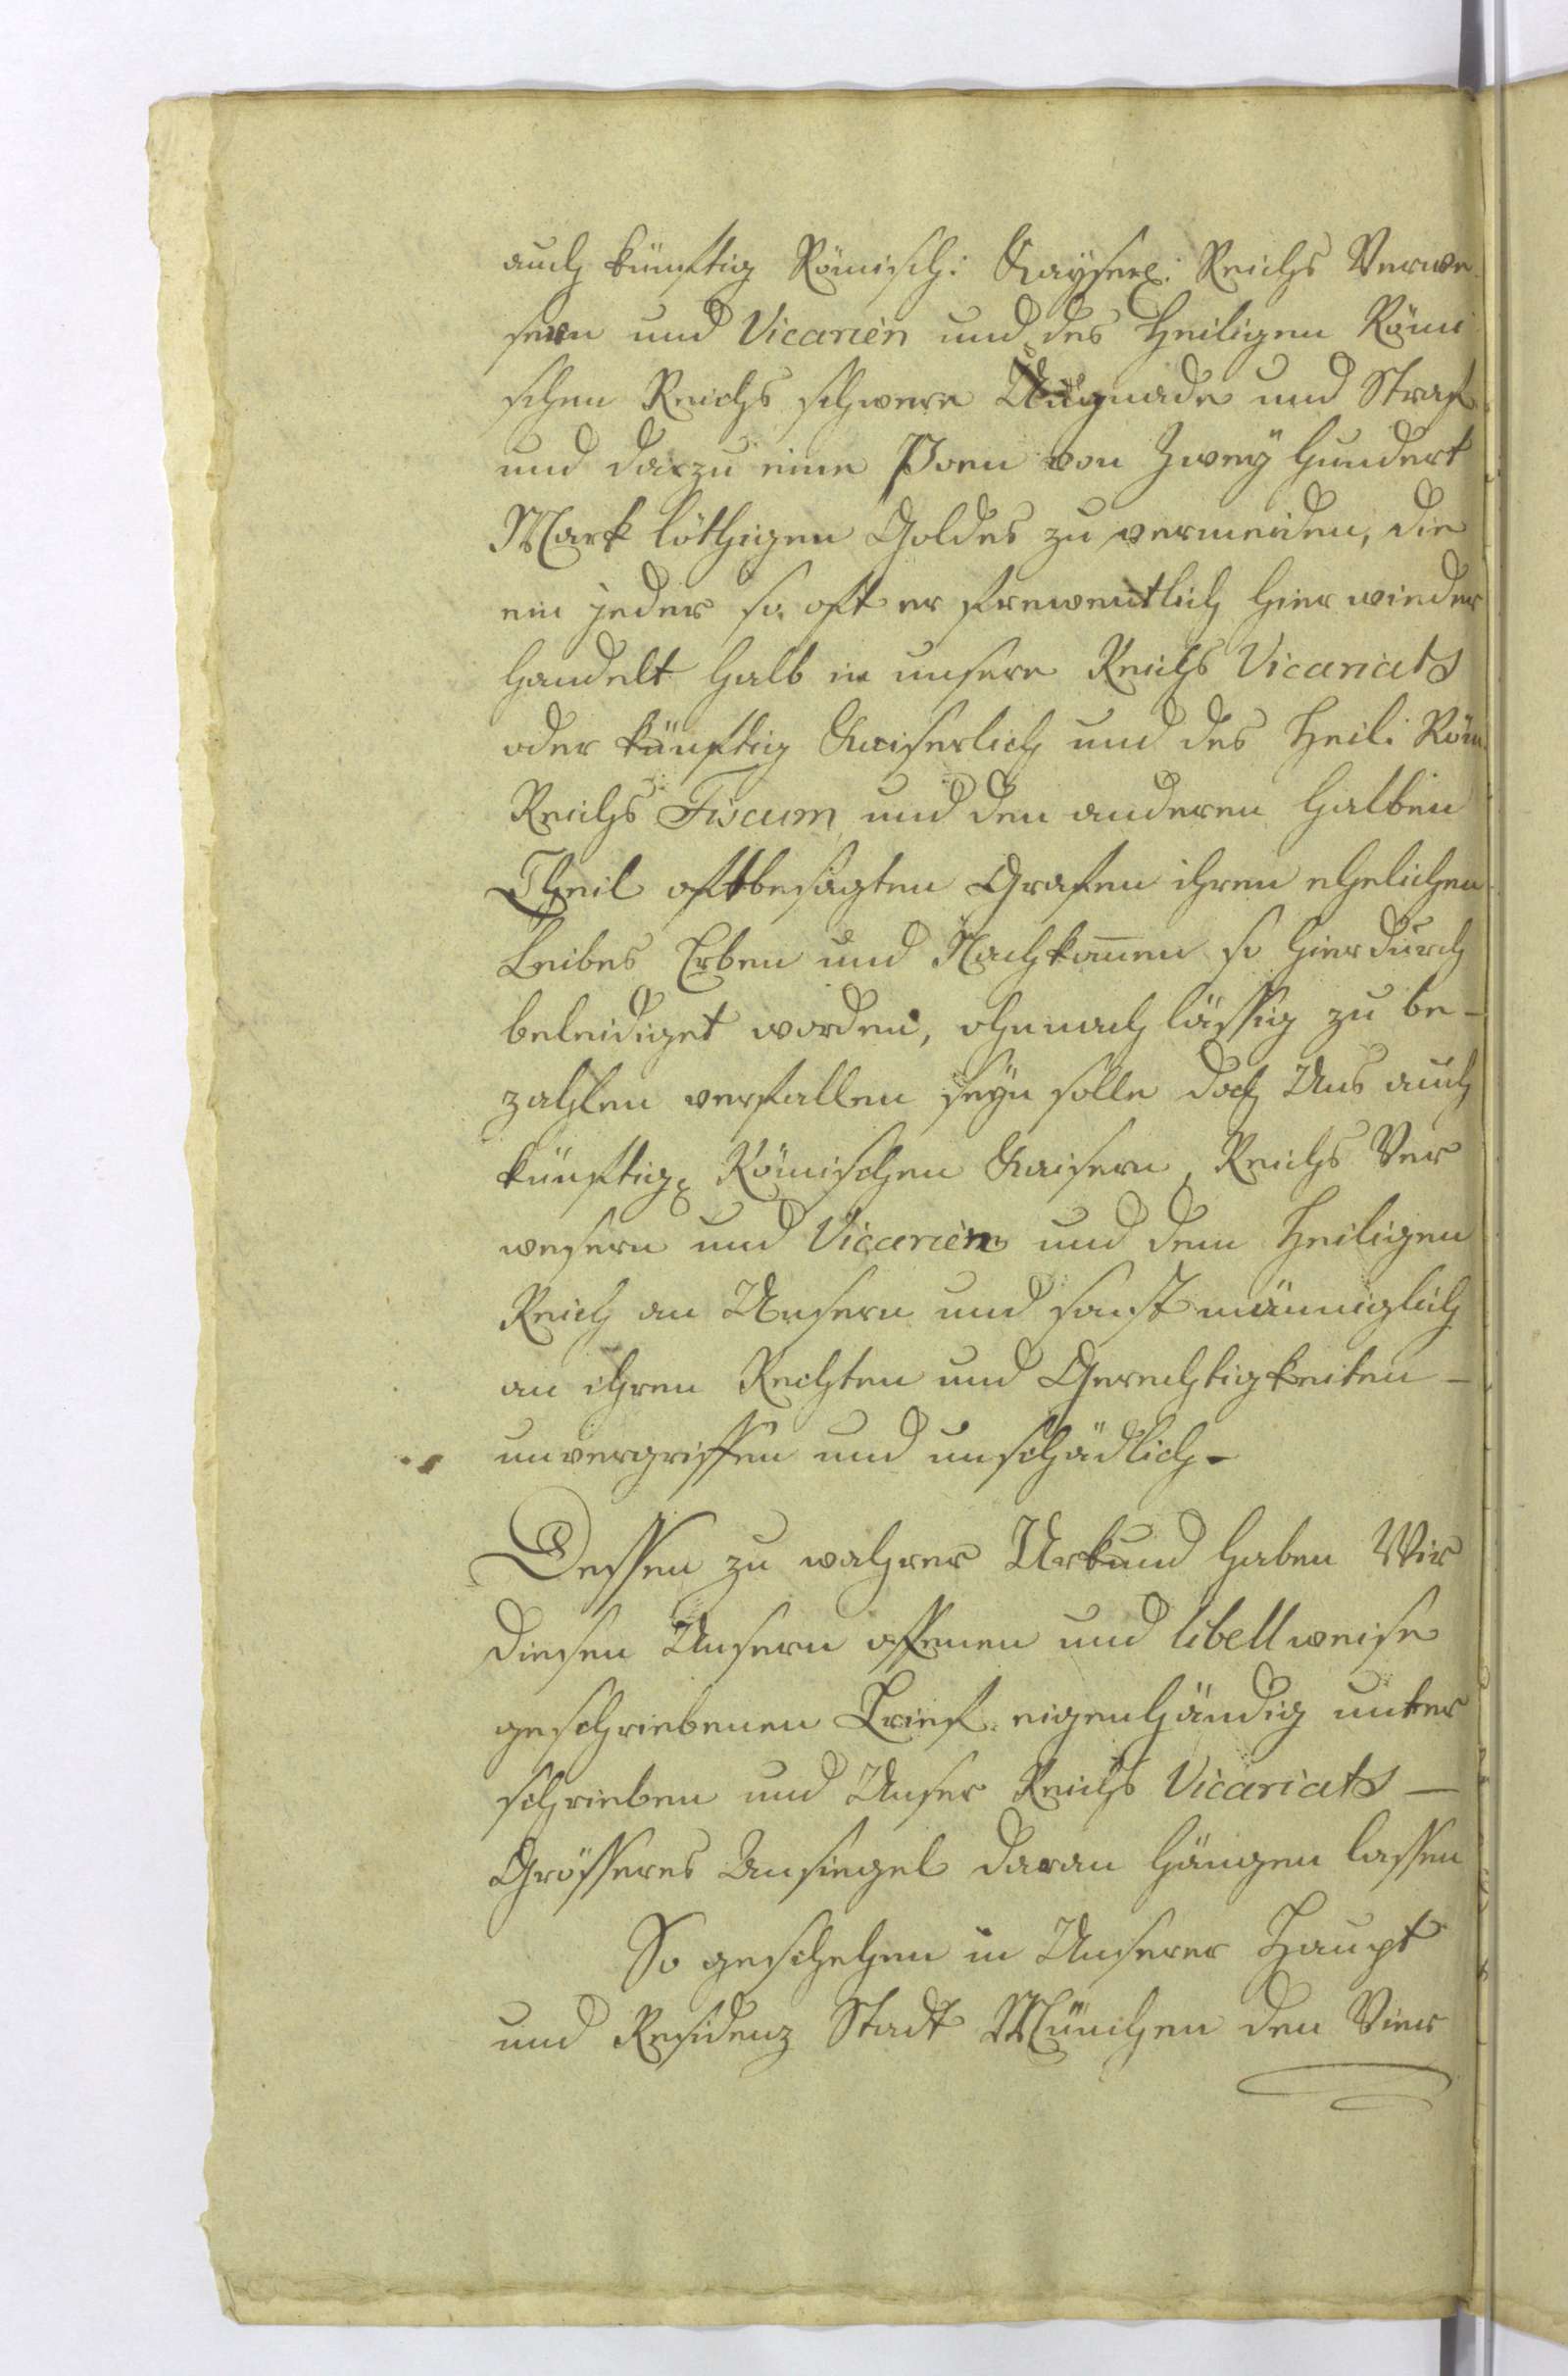 auch künftig Römisch: Kayserl: Reichs Verwe-
sern und Vicarien und des Heiligen Römi
schen Reichs schwere Ungnade und Straf
und darzu eine Poen von Zwey Hundert
Mark löthigen Goldes zu vermeiden, die
ein jeder so oft er frewentlich hier wieder
handelt halb in unsere Reichs Vicariats
oder künftig Kaiserlich und des Heil: Röm
Reichs Fiscum und den anderen halben
Theil oftbesagten Grafen ihren ehelichen
Leibes Erben und Nachkomen so hierdurch
beleidiget worden, ohnnachlässig zu be-
zahlen verfallen seyn solle doch Uns auch
künftig. Römischen Kaisern, Reichs Ver
wesern und Vicarien und dem Heiligen
Reich an Unsern und sonst männiglich
an ihren Rechten und Gerechtigkeiten -
unvergriffen und unschädlich.
Dessen zu wahrer Urkund haben Wir
diesen Unsern offenen und libell weise
geschriebenen Brief eigenhändig unter
schrieben und Unser Reichs Vicariats -
Grösseres Insiegel daran hängen lassen
So geschehen in Unserer Haupt
und Residenz Stadt München den Vier